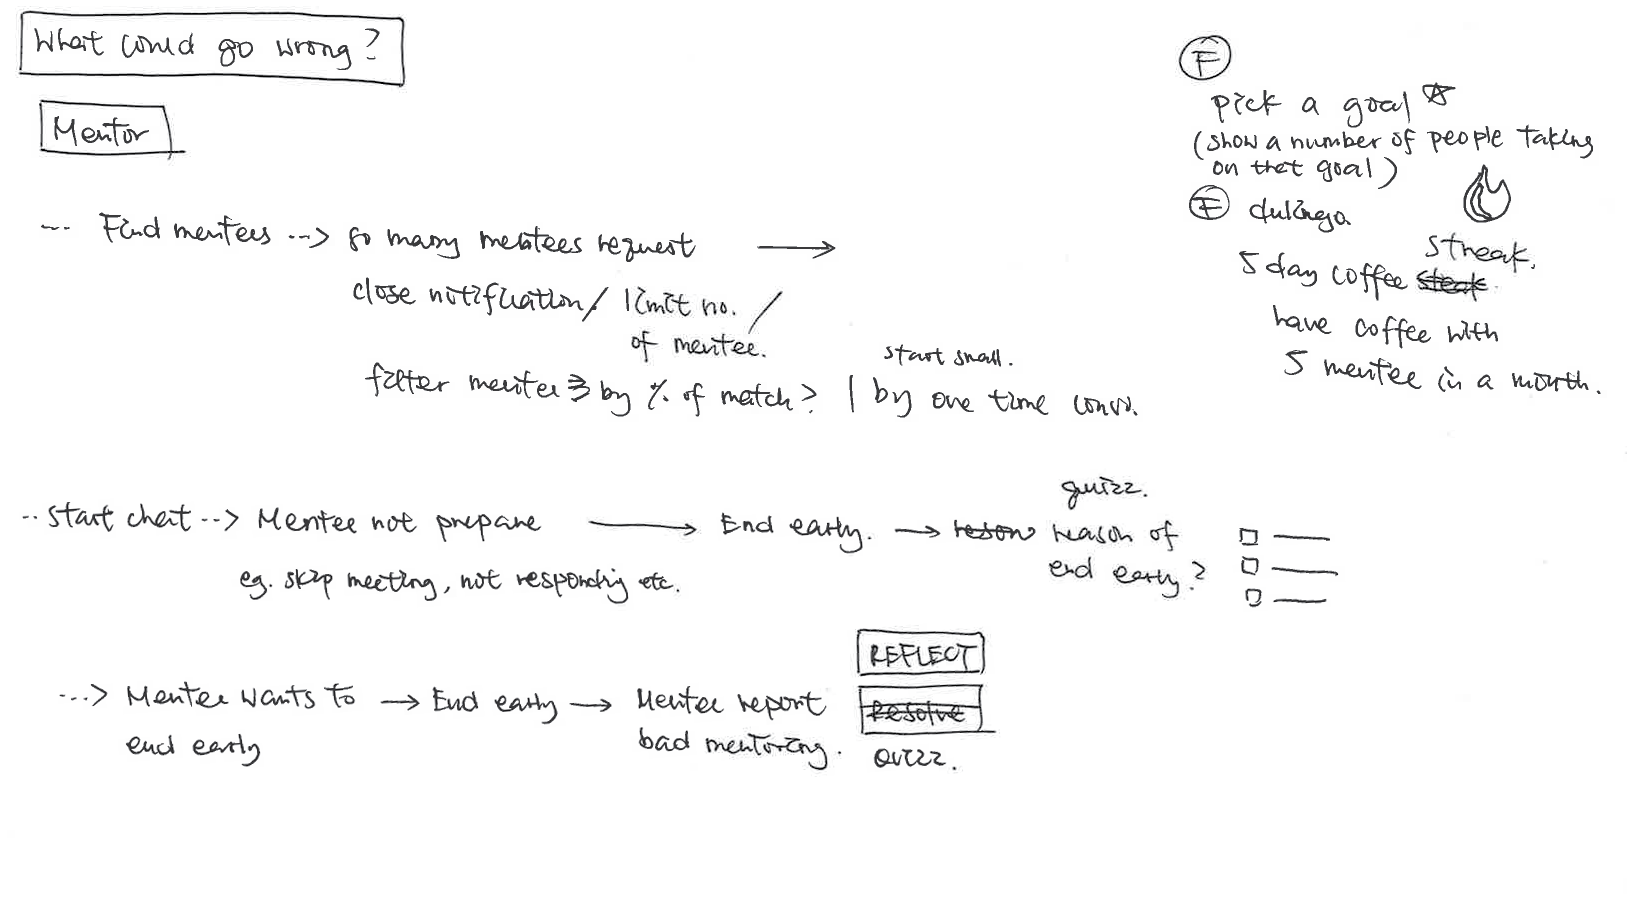 What could go wrong?
Mentor
Find mentees --> so many mentees request →
close notification / limit no. /
of mentee.
filter mentees by % of match? | by one time conv.
start small.
F
pick a goal ☆
(show a number of people taking
on that goal)
F dulingo
streak.
5 day coffee steak
have coffee with
5 mentee in a month.
-- start chat --> Mentee not prepare → End early. → reson reason of
quizz.
end early?
eg. skip meeting, not responding etc.
---> Mentee wants to → End early → Mentee report
end early
bad mentoring.
REFLECT
Resolve
Quizz.